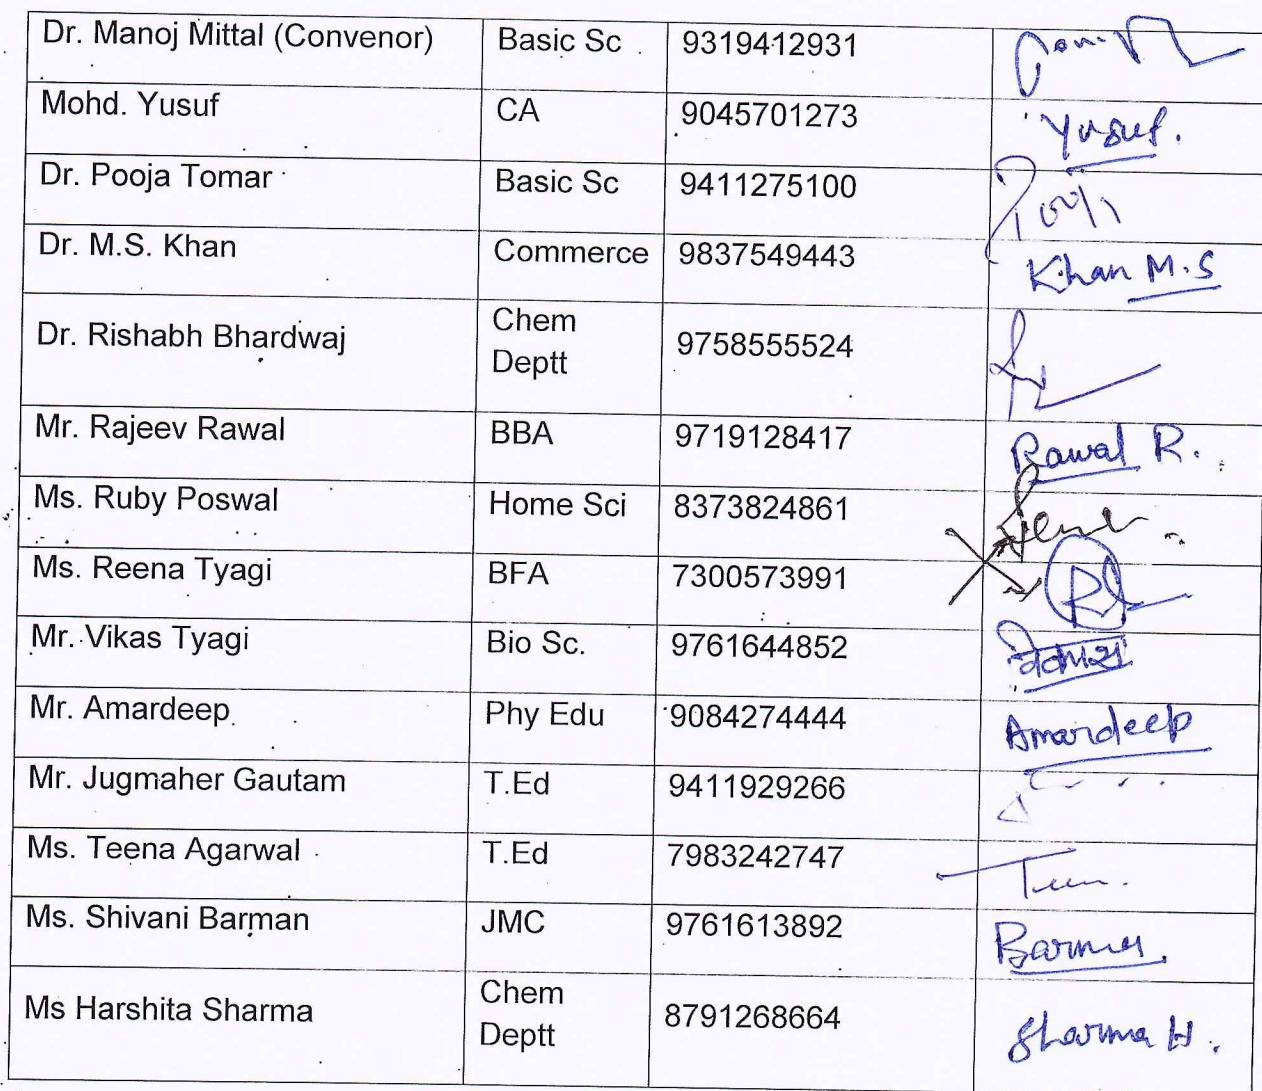 Dr. Manoj Mittal (Convenor) Basic Sc 9319412931
Mohd. Yusuf CA 9045701273 Yusuf.
Dr. Pooja Tomar Basic Sc 9411275100 Pooja
Dr. M.S. Khan Commerce 9837549443 Khan M.S
Dr. Rishabh Bhardwaj Chem 9758555524
Deptt
Mr. Rajeev Rawal BBA 9719128417 Rawal R.
Ms. Ruby Poswal Home Sci 8373824861
Ms. Reena Tyagi BFA 7300573991
Mr. Vikas Tyagi Bio Sc. 9761644852
Mr. Amardeep Phy Edu 9084274444 Amardeep
Mr. Jugmaher Gautam T.Ed 9411929266
Ms. Teena Agarwal T.Ed 7983242747
Ms. Shivani Barman JMC 9761613892
Ms Harshita Sharma Chem 8791268664 Sharma H.
Deptt